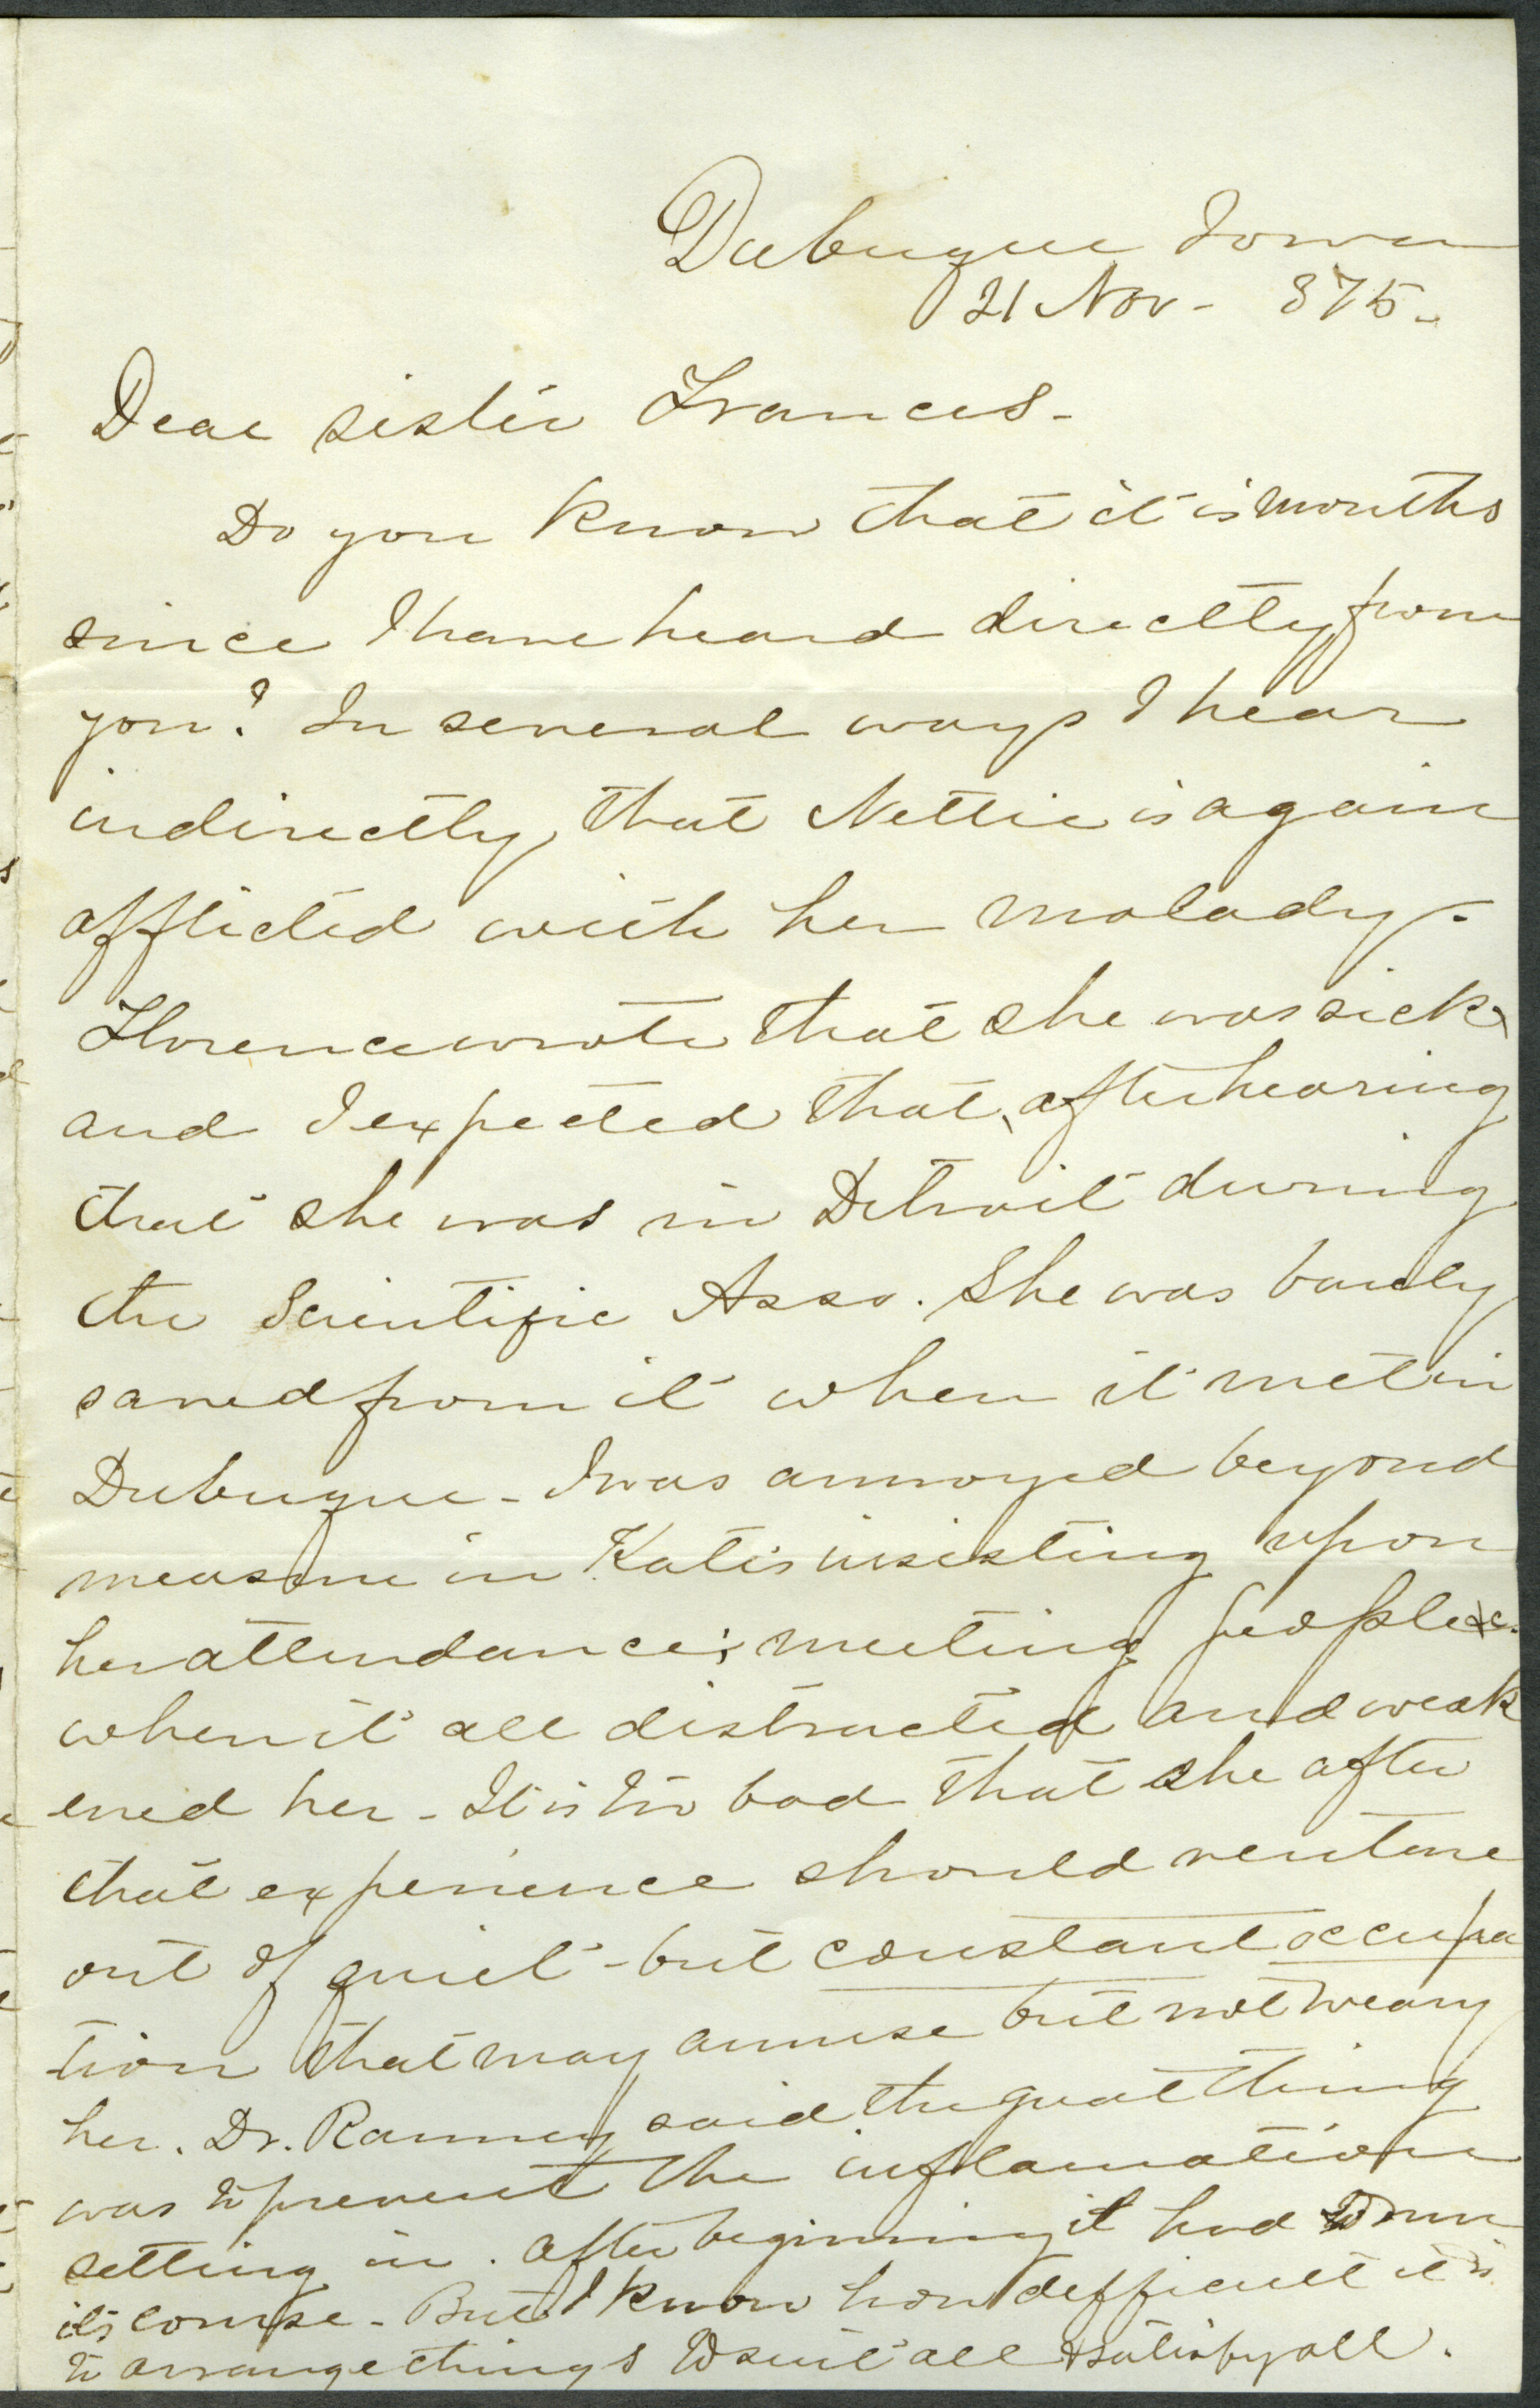 Dubuque Iowa
21 Nov - 875 -
Dear sister Frances -
Do you know that it is months
since I have heard directly from
you? In several ways I hear
indirectly, that Nettie is again
afflicted with her malady.
Florence wrote that she was sick,
and I expected that, after hearing
that she was in Detroit during
the Scientific Asso. She was barely
saved from it when it met in
Dubuque - I was annoyed beyond
measure in Kate's insisting upon
her attendance; meeting people &c.
when it all distracted and weak
ened her - It is too bad that she after
that experience should venture
out of quiet - but constant occupa
tion that may amuse but not weary
her. Dr. Ranney said the great thing
was to prevent the inflamation
setting in. After beginning it had to run
its course - But I know how difficult it is
to arrange things to suit all & satisfy all.